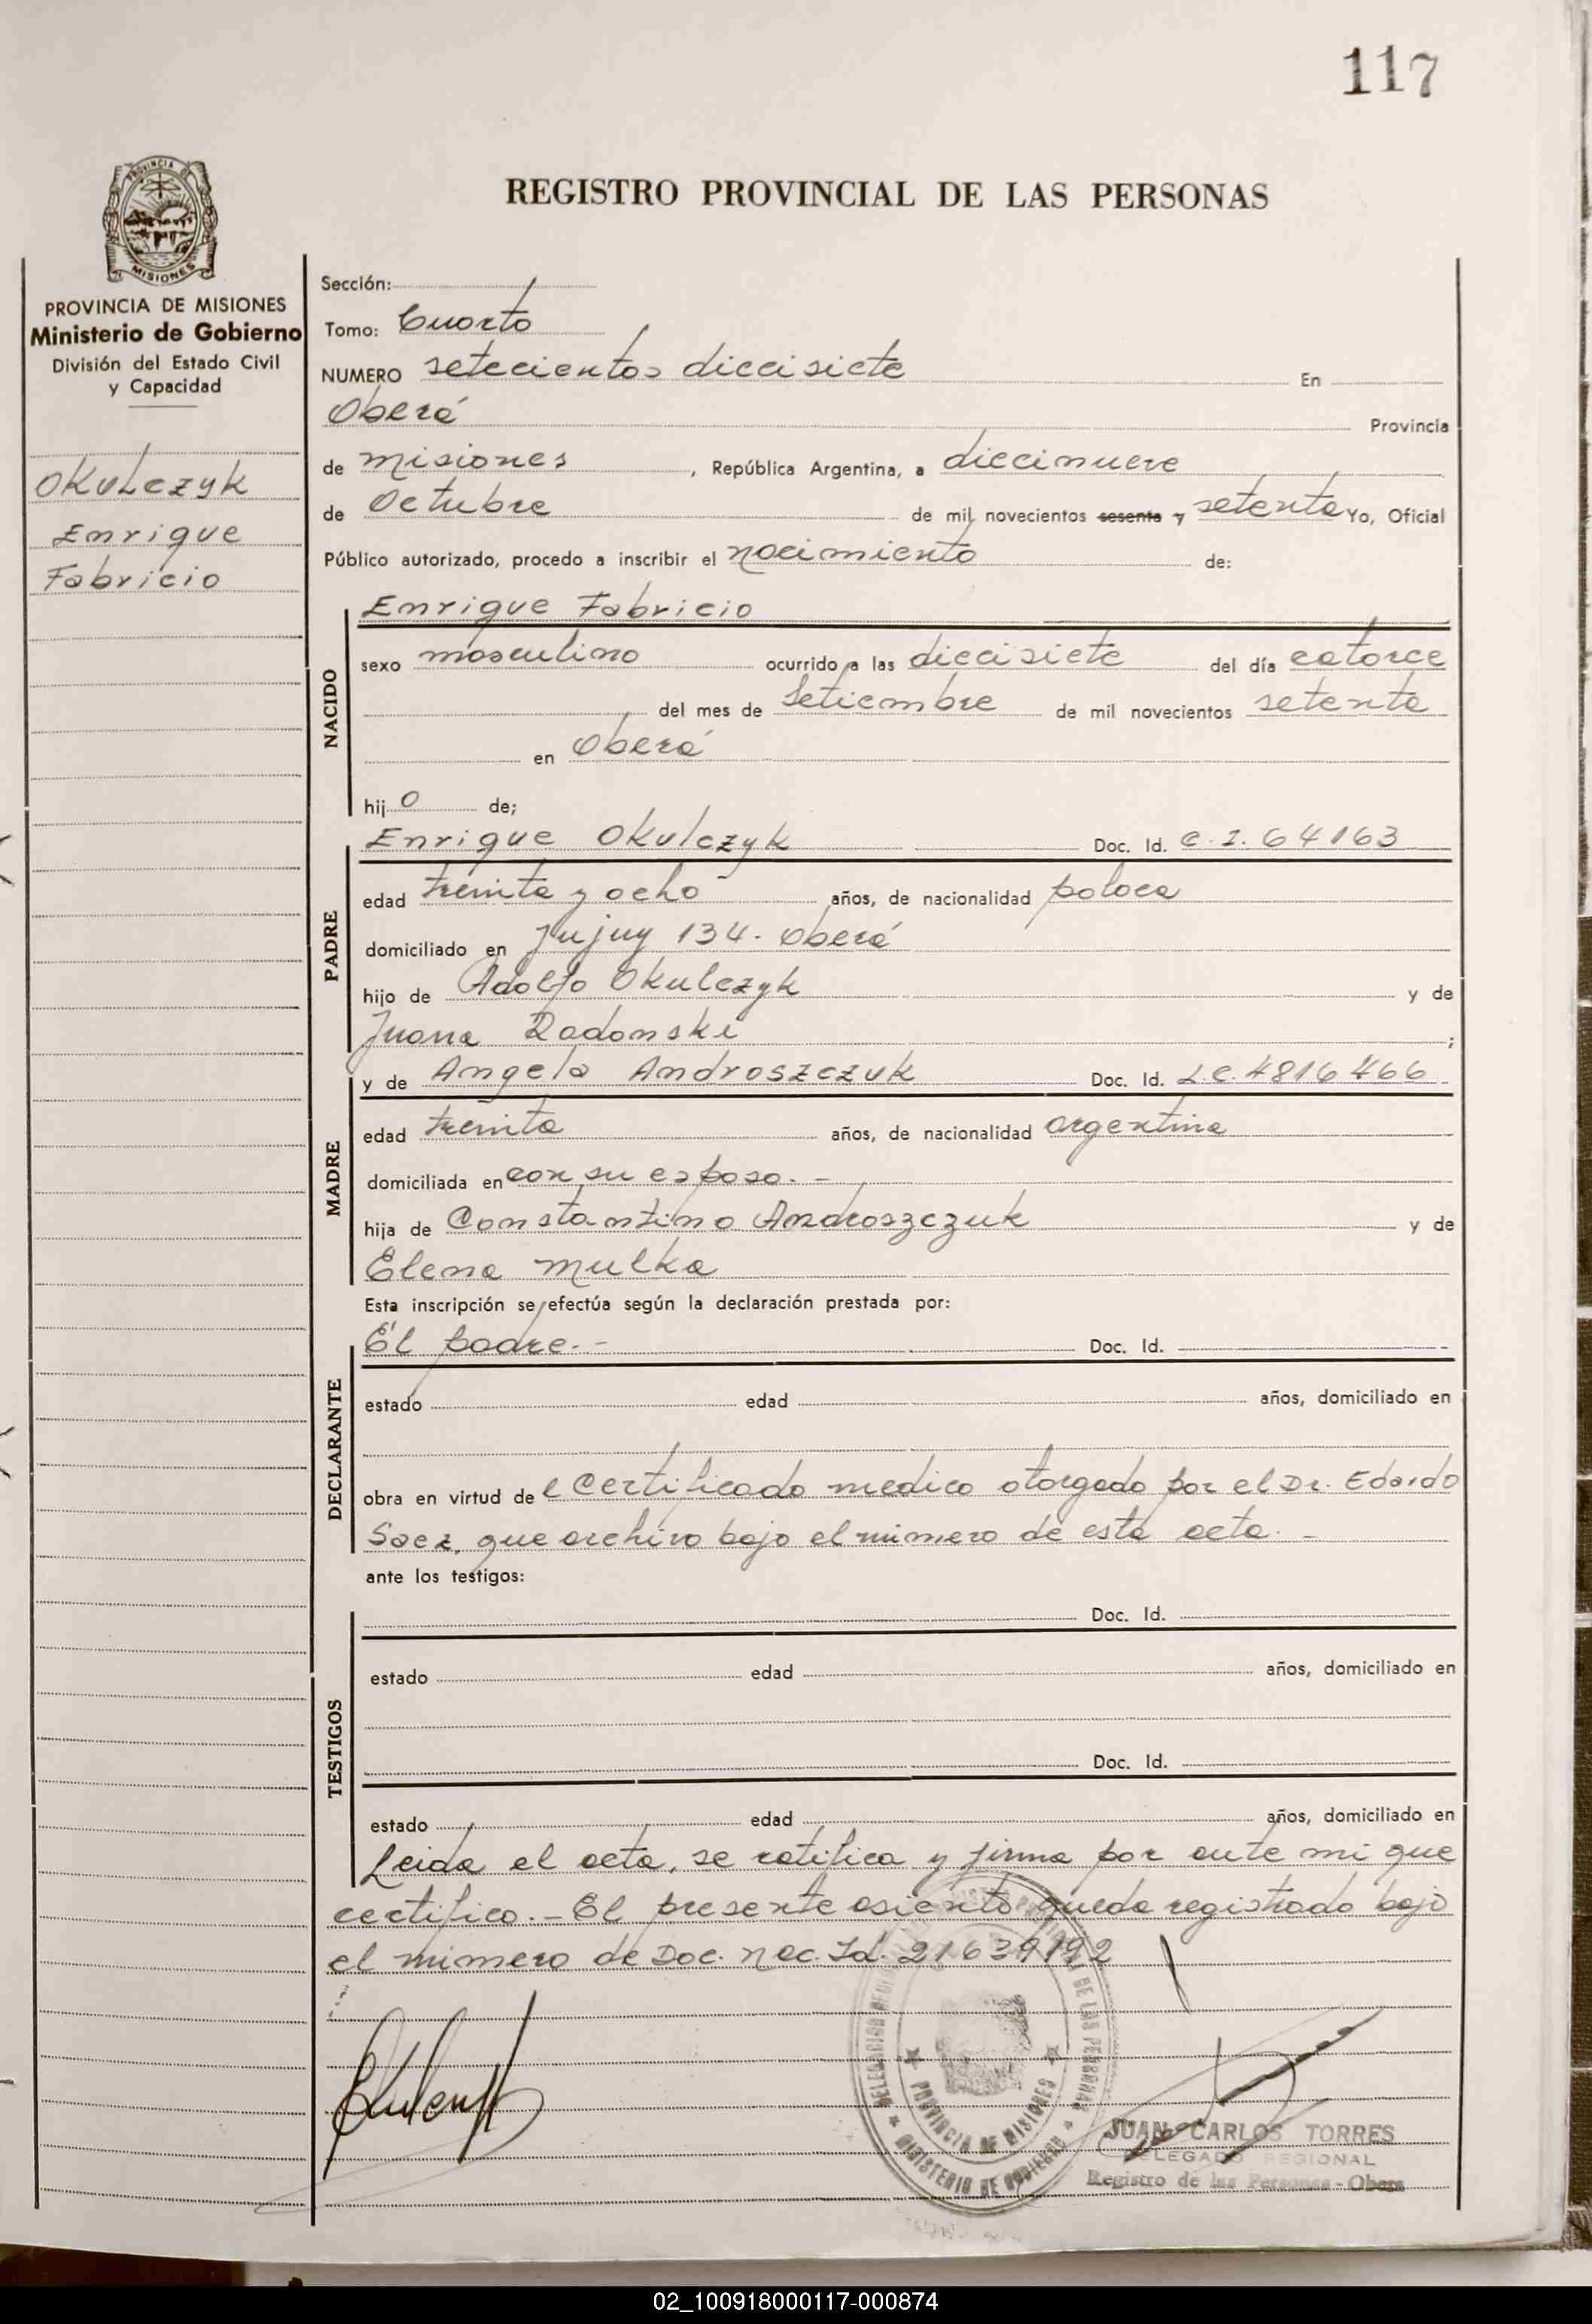 117
REGISTRO PROVINCIAL DE LAS PERSONAS
PROVINCIA DE
MISIONES
PROVINCIA DE MISIONES
Ministerio de Gobierno
División del Estado Civil
y Capacidad
Okulczyk
Enrique
Fabricio
Sección:
Tomo: Cuarto
NUMERO setecientos diecisiete En
Oberá Provincia
de Misiones, República Argentina, a diecinueve
de Octubre de mil novecientos sesenta y setenta Yo, Oficial
Público autorizado, procedo a inscribir el nacimiento de:
NACIDO
Enrique Fabricio
sexo masculino ocurrido a las diecisiete del día catorce
del mes de Setiembre de mil novecientos setenta
en Oberá
hijo de;
PADRE
Enrique Okulczyk Doc. Id. C.I. 64163
edad treinta y ocho años, de nacionalidad polaca
domiciliado en Jujuy 134. Oberá
hijo de Adolfo Okulczyk y de
Juana Radonski;
MADRE
y de Angela Androszczuk Doc. Id. L.C. 4816466
edad treinta años, de nacionalidad argentina
domiciliada en con su esposo.-
hija de Constantino Androszczuk y de
Elena Mulka
Esta inscripción se efectúa según la declaración prestada por:
DECLARANTE
El padre.- Doc. Id.
estado edad años, domiciliado en
obra en virtud de l Certificado medico otorgado por el Dr. Edardo
Saez, que archivo bajo el número de esta acta.-
ante los testigos:
TESTIGOS
Doc. Id.
estado edad años, domiciliado en
Doc. Id.
estado edad años, domiciliado en
Leida el acta, se ratifica y firma por ante mi que
certifico.- El presente asiento queda registrado bajo
el número de Doc. Nac. Id. 21639192
PROVINCIA DE MISIONES
MINISTERIO DE GOBIERNO
DE LAS PERSONAS
JUAN CARLOS TORRES
DELEGADO REGIONAL
Registro de las Personas - Obera
02_100918000117-000874